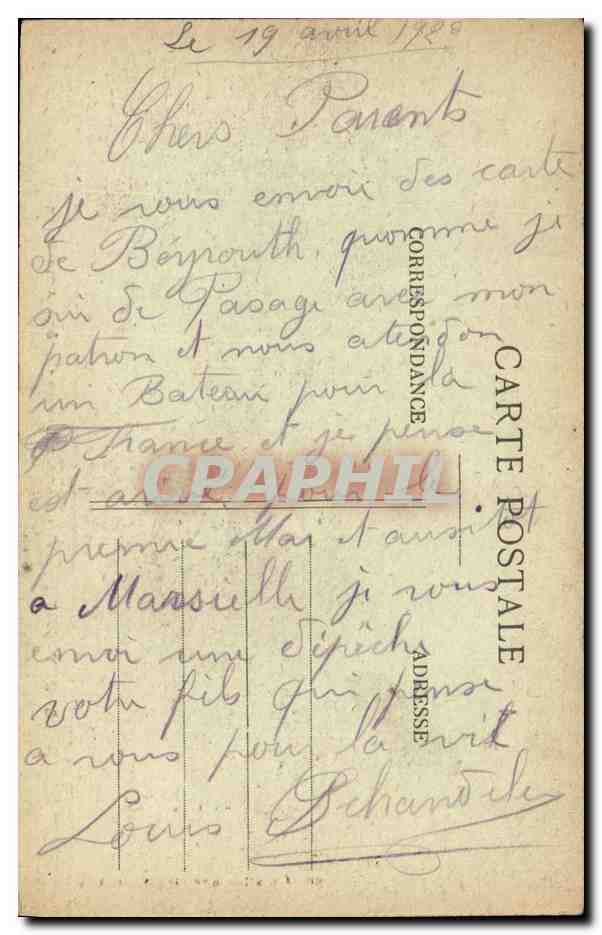 Le 19 avril 192
Chers Parents
je vous envoie des carte
de Béyrouth, quomme je
sui de Pasage avec mon
patron et nous atendon
un Bateau pour la
France et je pense
est arivé pour le
premie Mai et ausitot
a Marsielle je vous
envoi une dépêche
votre fils qui pense
a vous pour la vit
Louis
CORRESPONDANCE
CARTE POSTALE
ADRESSE
CPAPHIL